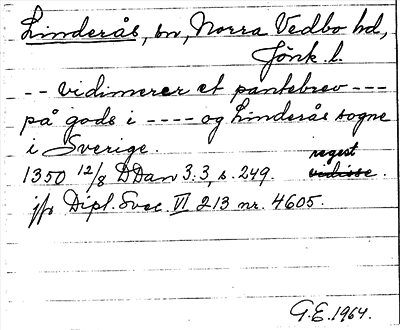 Linderås, sn, Norra Vedbo hd,
Jönk. l.
-- vidimerer et pantebrev ---
på gods i ---- og Linderås sogne
i Sverige.
regest
1350 12/8 DDan 3.3, s. 249. vidisse.
jfr Dipl. Svec. VI 213 nr. 4605.
G.E. 1964.